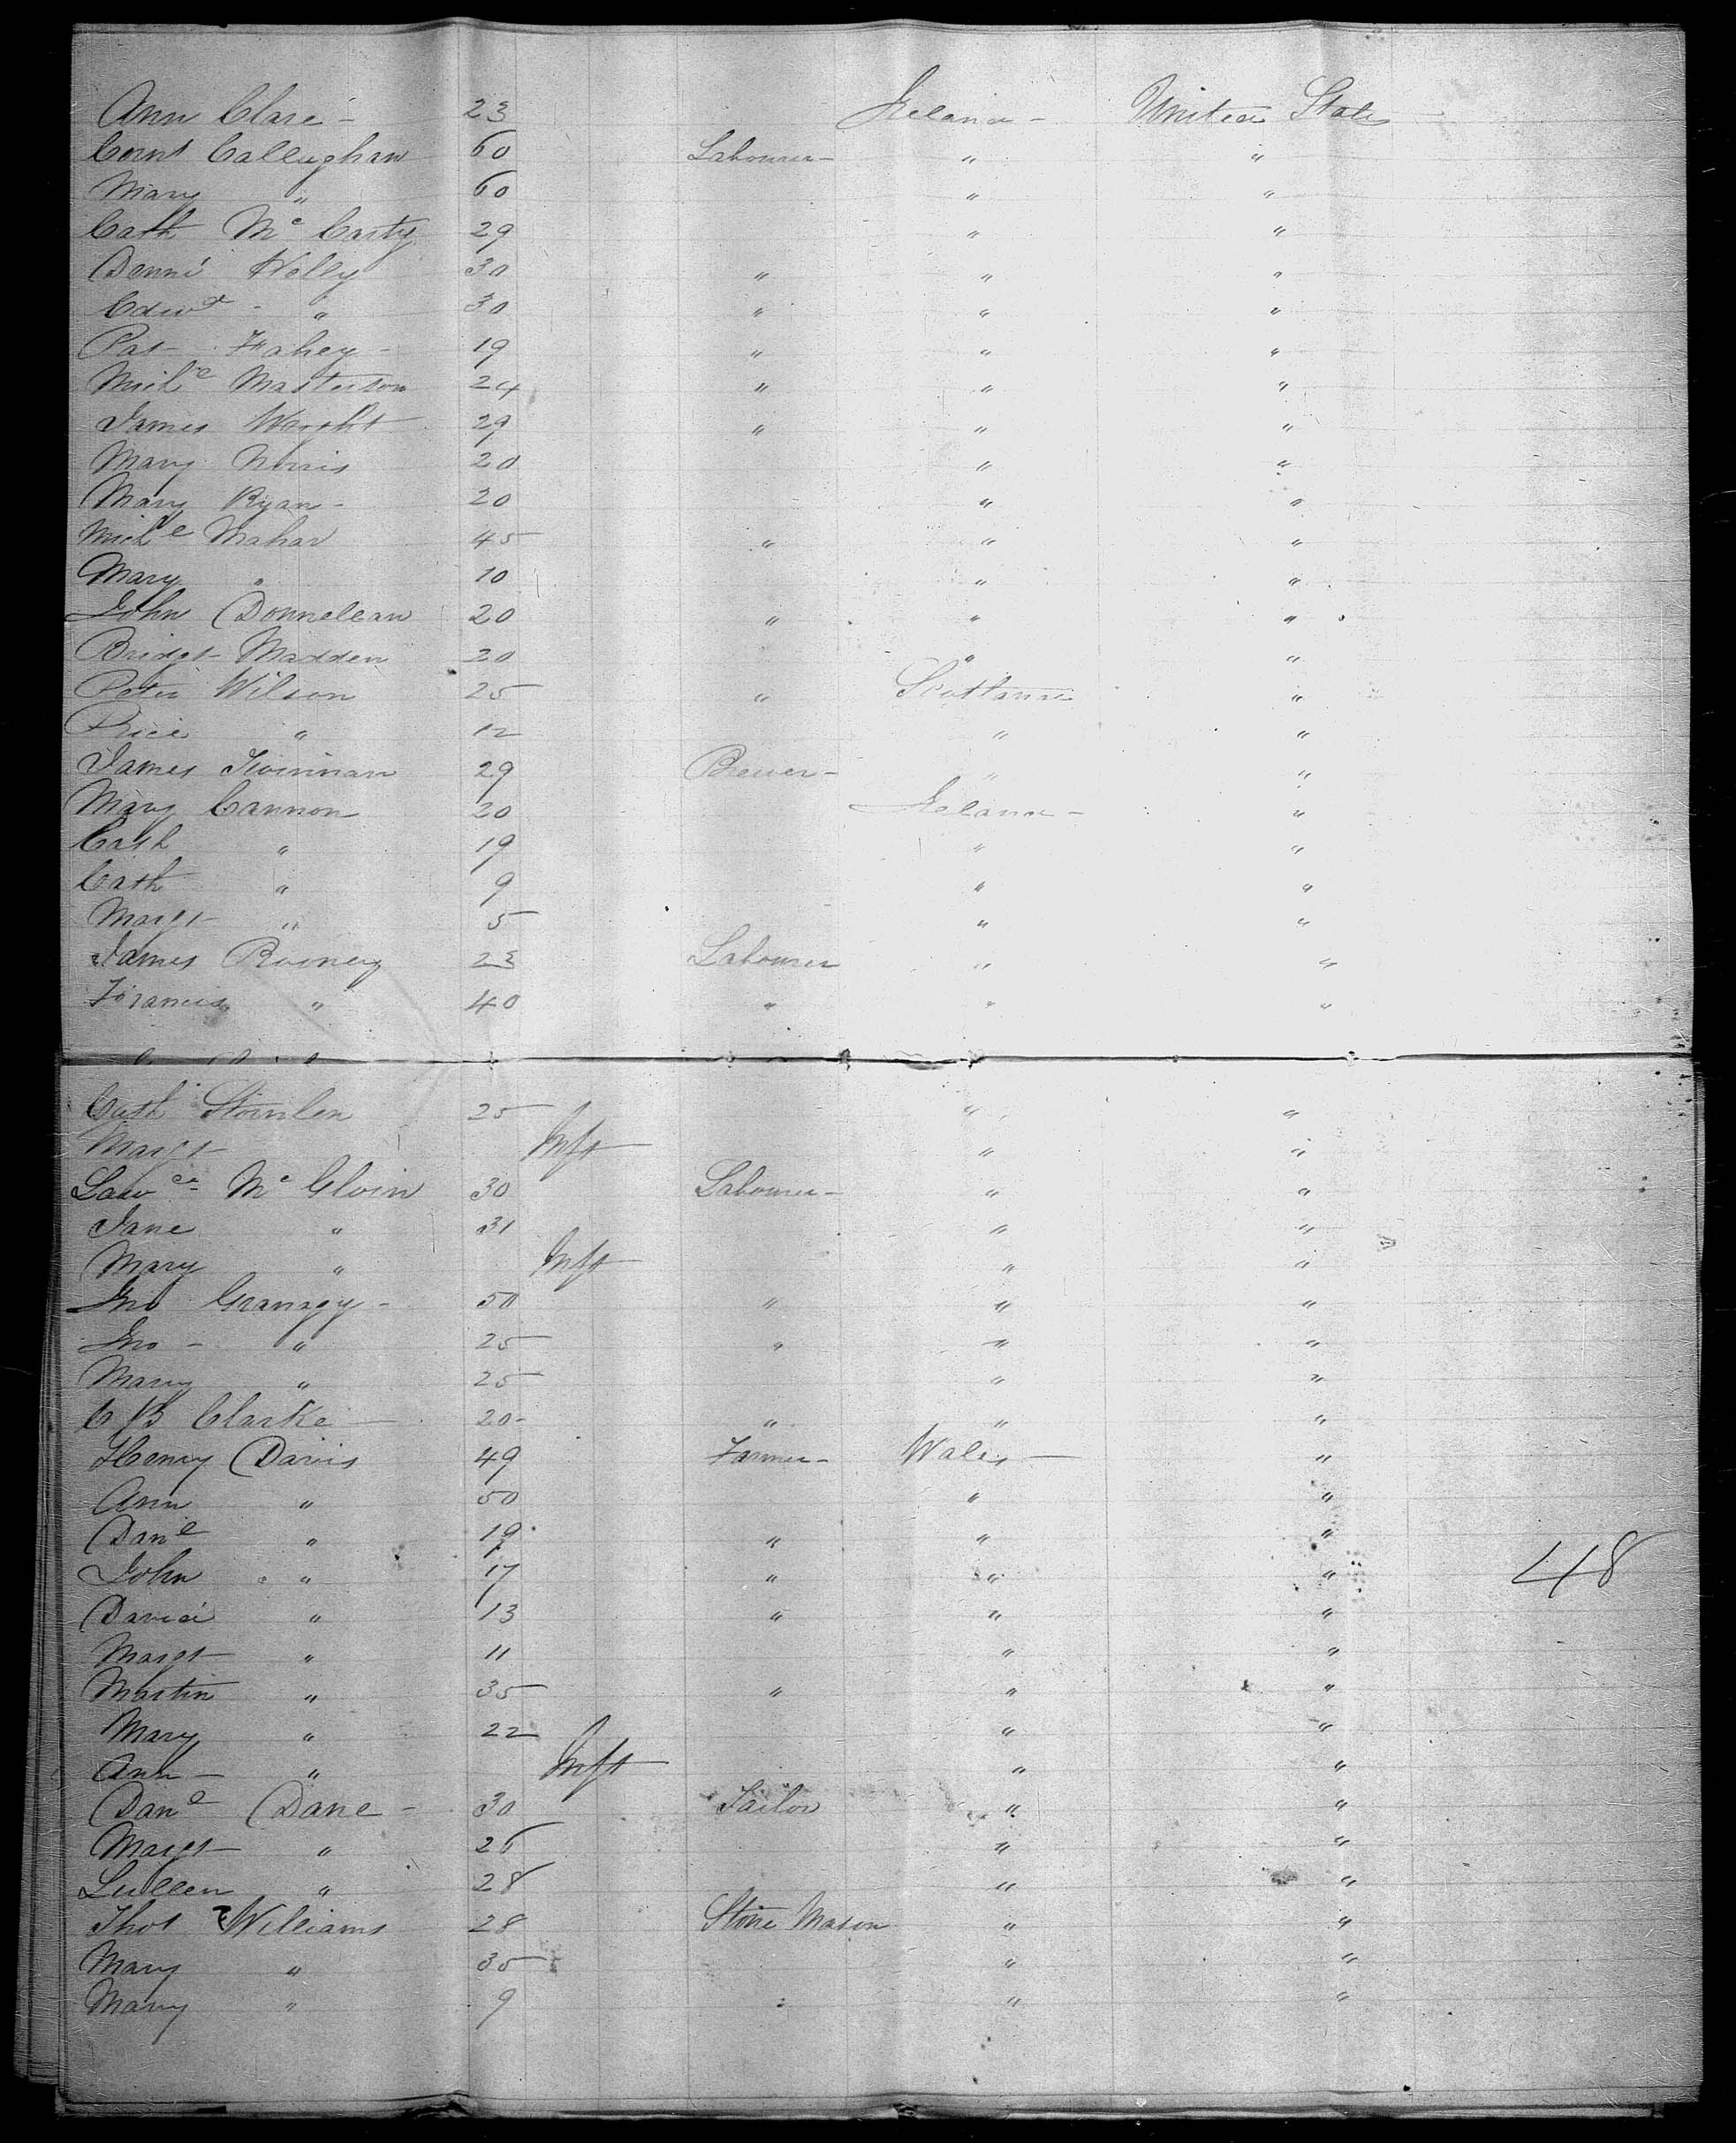 Ann Clare - 23 Ireland - United States
Corns Callaghan 60 Labourer - " "
Mary " 60 " "
Cath Mc Carty 29 " "
Denni Kelly 30 " " "
Edwd - " 30 " " "
Pat - Fahey - 19 " " "
Michl Masterson 24 " " "
James Wright 29 " " "
Mary Norris 20 " "
Mary Ryan - 20 " "
Michl Mahar 45 " " "
Mary " 10 " "
John Donnellan 20 " " "
Bridgt Madden 20 " "
Peter Wilson 25 " Scotland "
Price " 12 " "
James 29 Brewer - " "
Mary Cannon 20 Ireland - "
Cath " 19 " "
Cath " 9 " "
Margt " 5 " "
James Rooney 23 Labourer " "
Francis " 40 " " "
Cath 25 " "
Margt Inft " "
Lawce Mc Gloin 30 Labourer - " "
Jane " 31 " "
Mary " Inft " "
Jno 50 " " "
Jno - " 25 " " "
Mary " 25 " "
C B Clarke 20 - " " "
Henry Davis 49 Farmer - Wales "
Ann " 50 " "
Danl " 19 " " "
John " 17 " " " 48
David " 13 " " "
Margt " 11 " "
Martin " 35 " " "
Mary " 22 " "
Ann - " Inft " "
Danl Dane - 30 Tailor " "
Margt " 26 " "
" 28 " "
Thos Williams 28 Stone Mason " "
Mary " 35 " "
Mary " 9 " "